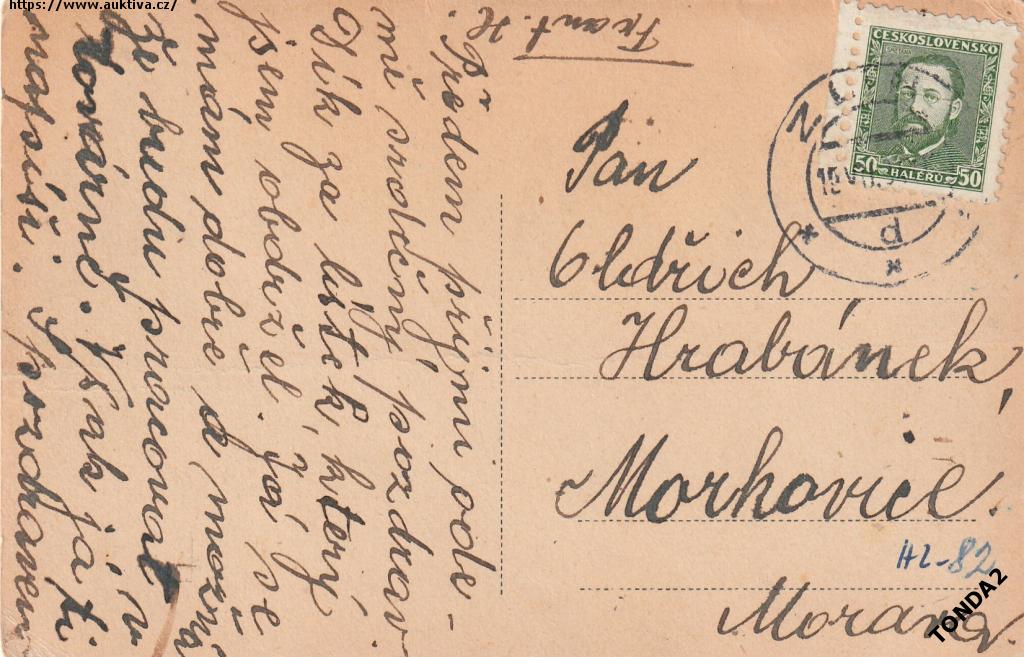 https://www.auktiva.cz/
Předem přijmi ode-
mě srdečný pozdrav
Dík za lístek, který
jsem obdržel. já se
mám dobře a možná
že budu pracovat v
továrně. Však já ti
napíši. S pozdravem
Frant. H.
ČESKOSLOVENSKO
50 HALÉŘŮ 50
d
Pan
Oldřich
Hrabánek,
Morkovice.
HL-82
Morava.
TONDA2